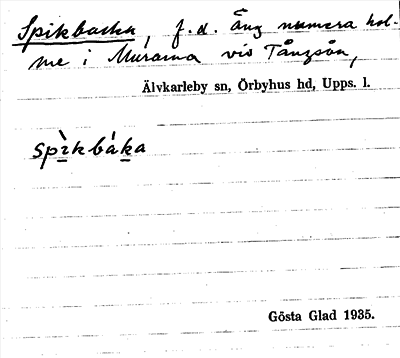 Spikbacka, f.d. Äng numera hol-
me i Murarna vid Tångsån,
Älvkarleby sn, Örbyhus hd, Upps. l.
spìkbàka
Gösta Glad 1935.